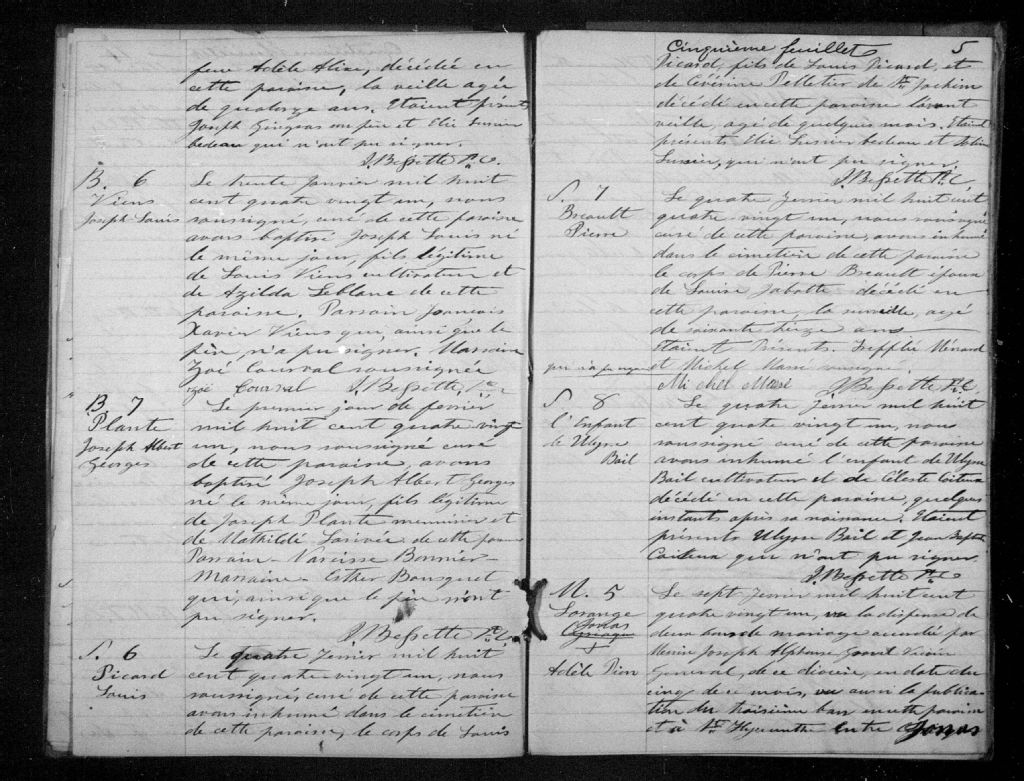 feue Adèle Alixe, décédée en
cette paroisse, la veille agée
de quatorze ans. Etaient présents
Joseph Gingras son père et Elie Lussier
bedeau qui n'ont pu signer.
J. Bessette Ptre C.
B. 6
Viens
Joseph Louis
Le trente Janvier mil huit
cent quatre vingt un, nous
soussigné, curé de cette paroisse
avons baptisé Joseph Louis né
le même jour, fils légitime
de Louis Viens cultivateur et
de Azilda Leblanc de cette
paroisse. Parrain François
Xavier Viens qui, ainsi que le
père, n'a pu signer. Marraine
Zoé Courval soussignée
Zoé Courval J. Bessette, Ptre C
B 7
Plante
Joseph Albert
Georges
Le premier jour de fevrier
mil huit cent quatre vingt
un, nous soussigné curé
de cette paroisse, avons
baptisé Joseph Albert Georges
né le même jour, fils légitime
de Joseph Plante menuisier et
de Mathilde Larivée de cette paroisse
Parrain - Narcisse Bonnier -
Marraine - Esther Bousquet
qui, ainsi que le père n'ont
pu signer.
J. Bessette Ptre C.
S. 6
Picard
Louis
Le quatre Fevrier mil huit
cent quatre vingt un, nous
soussigné, curé de cette paroisse
avons inhumé dans le cimetière
de cette paroisse, le corps de Louis
Cinquième feuillet 5
Picard, fils de Louis Picard, et
de Céverine Pelletier de St. Jochim
décédé en cette paroisse l'avant
veille, agé de quelques mois. Etaient
présents Elie Lussier bedeau et
Lussier, qui n'ont pu signer.
J. Bessette Ptre C.
S. 7
Breault
Pierre
Le quatre Fevrier mil huit cent
quatre vingt un, nous soussigné
curé de cette paroisse, avons inhumé
dans le cimetière de cette paroisse
le corps de Pierre Breault époux
de Louise Jabotte décédé en
cette paroisse, la surveille, agé
de soixante seize ans
étaient Présents. Trefflé Ménard
qui n'a pu signer et Michel Massé soussigné.
Michel Massé J. Bessette Ptre C
S. 8
l'Enfant
de Ulysse
Bail
Le quatre Fevrier mil huit
cent quatre vingt un, nous
soussigné curé de cette paroisse
avons inhumé l'enfant de Ulysse
Bail cultivateur et de Céleste Coiteux
décédé en cette paroisse, quelques
instants après sa naissance. Etaient
présents Ulysse Bail et Jean Bapte
Coiteux qui n'ont pu signer
J. Bessette Ptre C.
M. 5
Lorange
Jonas
+
Adèle Pion
Le sept Fevrier mil huit cent
quatre vingt un, vu la dispense de
deux bans de mariage accordée par
Messire Joseph Alphonse Gravel Vicaire
General, de ce diocèse, en date du
cinq de ce mois, vu aussi la publica-
tion du troisième ban en cette paroisse
et à St. Hyacinthe entre Jonas